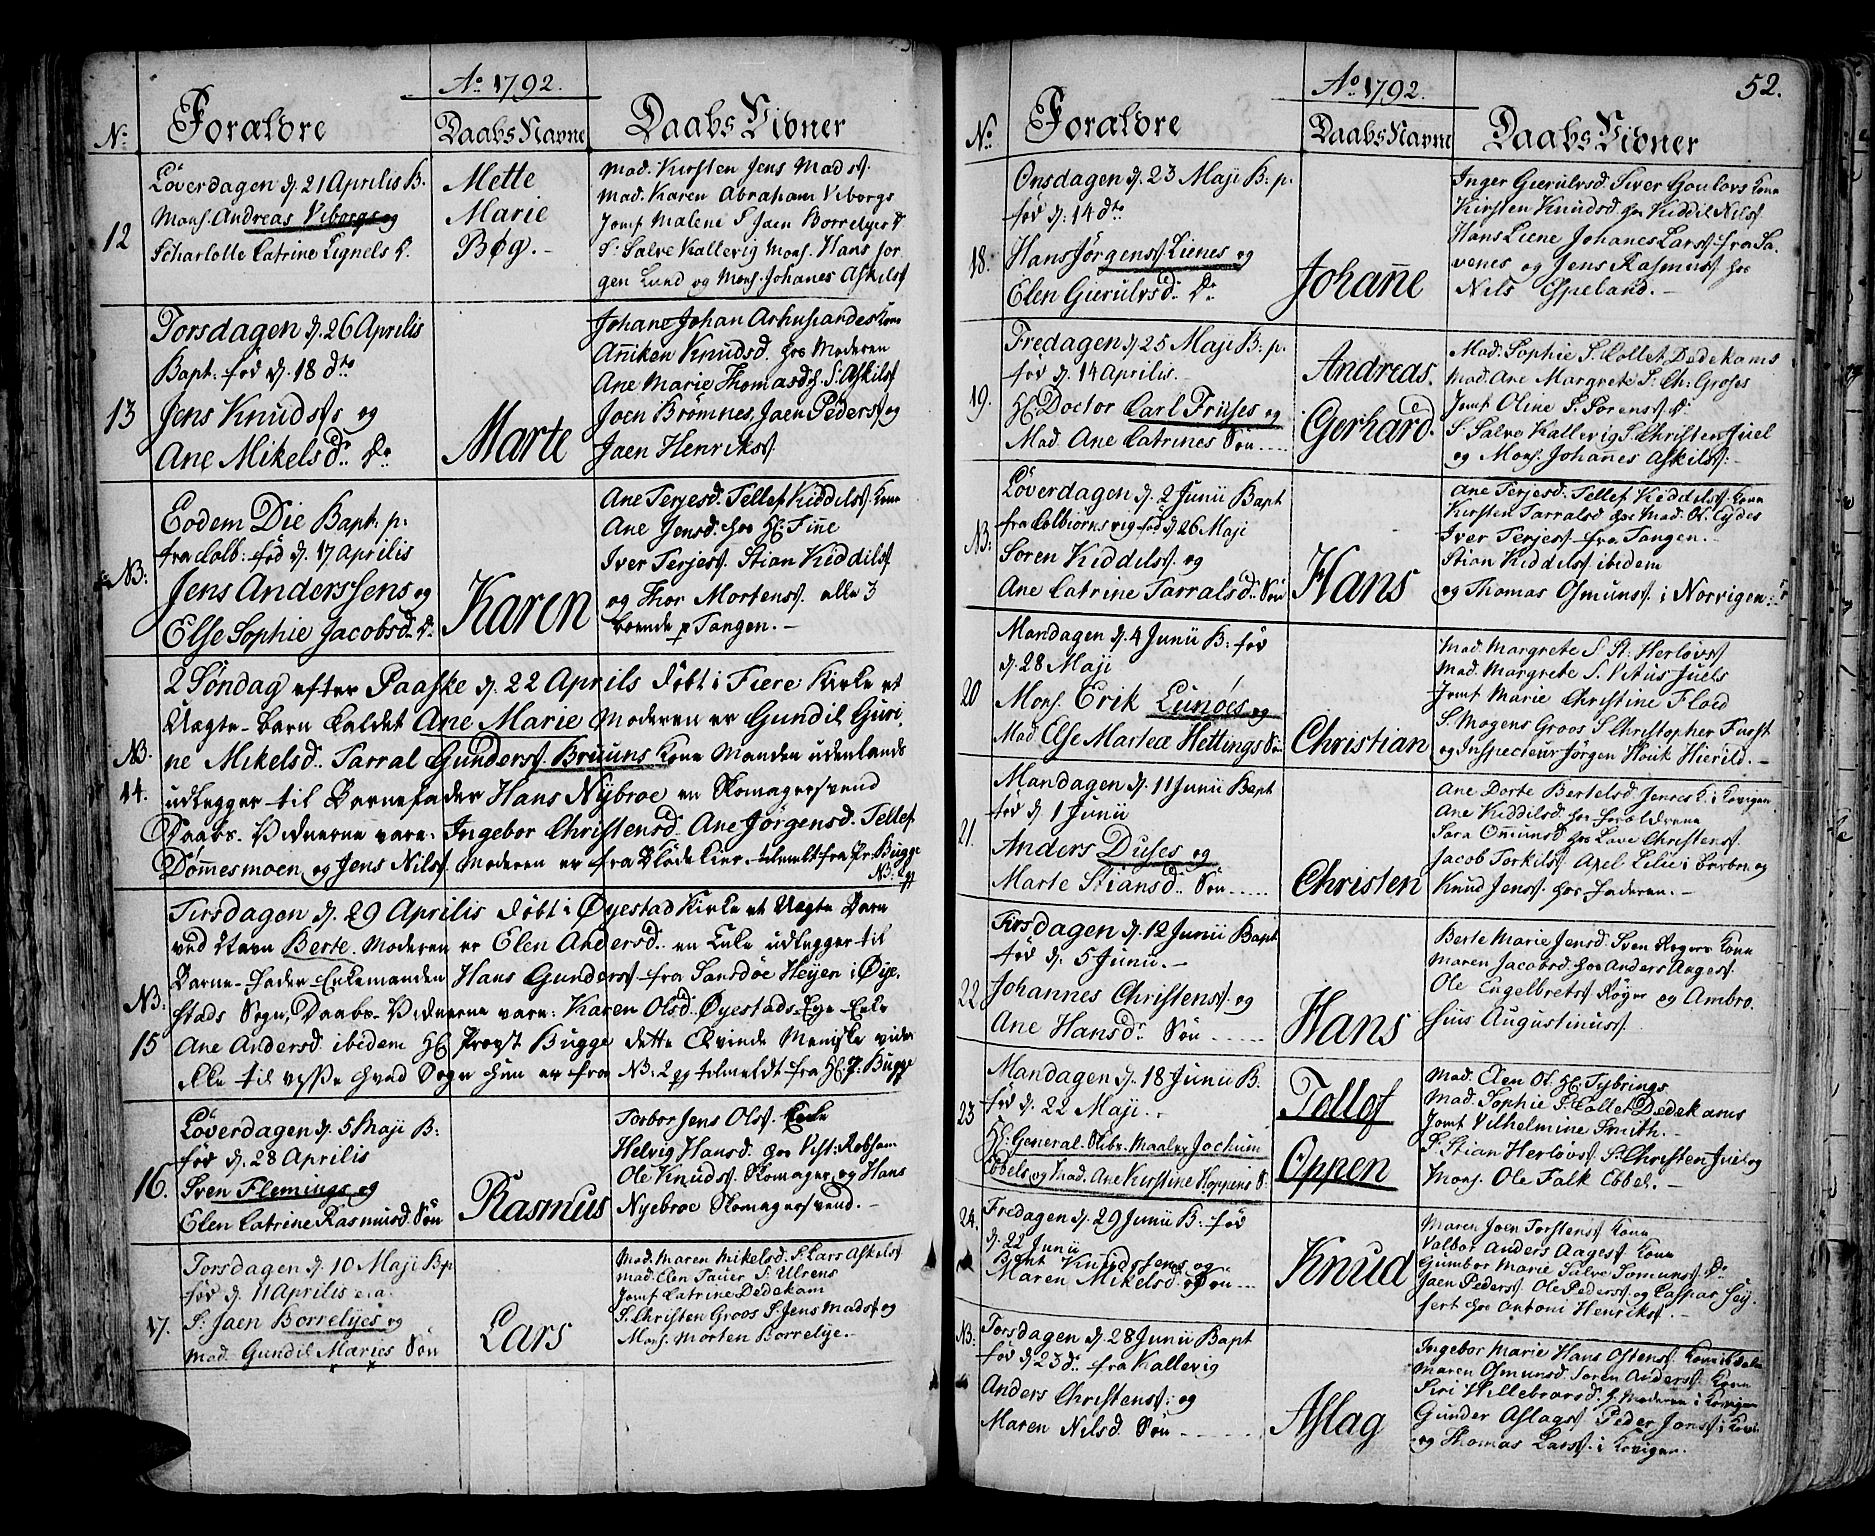 Ao 1792.
No Forældre Daabs Navne Daabs Vidner
12
Löverdagen d. 21 Aprilis B.
Mons. Andreas Viborgs og
Scharlotte Catrine Lignels D.
Mette
Marie
Bøg.
Mad. Kirsten Jens Madss.
Mad. Karen Abraham Viborgs
Jomf Malene S. Jaen Borrelyes D
Sr. Salve Kallevig Mons. Hans Jør
gen Lund og Mons. Johanes Askilss
13
Torsdagen d. 26 Aprilis
Bapt: fød d. 18 dto
Jens Knudss og
Ane Mikelsd. Dr
Marte
Johane Johan Arhusiandes Kone
Aniken Knudsd. hos Moderen
Ane Marie Thomasd. S. Askilss
Joen Brømnes, Jaen Pederss og
Jaen Henrikss.
NB:
Eodem Die Bapt: p:
fra Colb: fød d. 17 Aprilis
Jens Anderssens og
Else Sophie Jacobsd. Dr
Karen
Ane Terjesd. Tellef Kiddilss. Kone
Ane Jensd. hos Hr. Fine
Iver Terjess. Stian Kiddilss
og Thor Mortenss. alle 3
boende p Tangen.
NB.
14.
2 Söndag efter Paaske d. 22 Aprils döbt i Fiere Kirke et
Uægte-barn kaldet Ane Marie Moderen er Gundil Guri,
ne Mikelsd. Tarral Gunderss. Bruuns Kone Manden udenlands
udlegger til Barnefader Hans Nybroe en Skomagersvend
Daabs-Vidnerne vare: Ingebor Christensd. Ane Jørgensd. Tellef
Dömmesmoen og Jens Nilss. Moderen er fra Blødekier tilmeldt fra Pr. Bugge
NB:
15
Tirsdagen d. 29 Aprilis döbt i Øyestad Kirke et Uægte Barn
ved Navn Berte. Moderen er Elen Andersd. en Enke udlegger til
Barne-Fader Enkemanden Hans Gunderss. fra Sandsdøe Heyen i Øye,
stads Sogn, Daabs-Vidnerne vare: Karen Olsd. Øyestads-Eye-Enke
Ane Andersd. ibidem Hr. Provst Bugge dette Qvinde Meniske vides
ikke til visse hvad Sogn hun er fra NB: tilmeldt fra Hr. P. Bugge
16.
Löverdagen d. 5 Maji B:
fød d. 28 Aprilis
Sven Flemings og
Elen Catrine Rasmusd. Søn
Rasmus
Torbor Jens Olss. Enke
Helvig Hansd. hos Vist: Robsam
Ole Knudss. Skomager og Hans
Nyebroe Skomagersvend.
17.
Torsdagen d. 10 Maji Bp
fød d. 11 Aprilis e.a.
Sr. Jaen Borrelyes og
Mad. Gundil Maries Søn
Lars
Mad. Maren Mikelsd. S. Lars Askelss
Mad. Elen Pauer S. Ulrens
Jomf Catrine Dedekam
S. Christen Groos S. Jens Madss og
Mons. Morten Borrelye.
52.
Ao 1792.
No Forældre Daabs Navne Daabs Vidner
18.
Onsdagen d. 23 Maji B: p.
fød d. 14 dto
Hans Jörgenss. Lienes og
Elen Gierulvsd. Dr
Johane
Inger Gierulvsd. Siver Goulovs Kone
Kirsten Knudsd. hos Kiddil Nilss
Hans Liene Johanes Larss. fra Sa,
venes og Jens Rasmuss. hos
Nils Espeland.
19.
Fredagen d. 25 Maji B: p.
fød d. 14 Aprilis.
Hr. Doctor Carl Friises og
Mad. Ane Catrines Søn
Andreas.
Gerhard.
Mad. Sophie S. Collet Dedekams
Mad. Ane Margrete S. Ch: Groses
Jomf Oline S. Sörenss. D
S. Salve Kallevig S. Christen Juel
og Mons. Johannes Askilss.
NB:
Löverdagen d. 2 Junii Bapt
fra Colbiörnsvig fød d. 26 Maji
Sören Kiddelss. og
Ane Catrine Tarralsd. Søn
Hans
Ane Terjesd. Tellef Kiddelss. Kone
Kirsten Tarralsd hos Mad. Ol. Eydes
Iver Terjess. fra Tangen.
Stian Kiddelss ibidem
og Thomas Osmunss. i Norvigen.
20
Mandagen d. 4 Junii B: fød
d. 28 Maji
Mons. Erik Lunöes og
Mad Else Martea Hettings Søn
Christian
Mad. Margrete S. P. Herlövss
Mad. Margrete S. Vitus Juels
Jomf Marie Christine Floed
S. Mogens Groos S. Christopher Furst
og Inspecteur Jörgen Houk Hierild.
21.
Mandagen d. 11 Junii Bapt
fød d 1 Junii
Anders Duses og
Marte Stiansd. Søn
Christen
Ane Dorte Bertelsd. Jenses K. i Kovigen
Ane Kiddilsd. hos Forældrene
Sara Ommunsd. hos Lave Christenss.
Jacob Torkilss. Axel Lilie i Barboe og
Knud Jenss. hos Faderen.
22
Tirsdagen d. 12 Junii Bapt
fød d. 5 Junii.
Johannes Christenss. og
Ane Hansd. Søn
Hans
Berte Marie Jensd. Sven Røgers Kone
Maren Jacobsd. hos Anders Aagess.
Ole Engelbretss. Röger og Ambro.
sius Augustinuss.
23
Mandagen d. 18 Junii B.
fød d. 22 Maji.
Hr: General Krigs-Maaler Jochum
Ebbels og Mad. Ane Kirstine Hoppens S.
Tollof
Oppen
Mad. Elen Ol. Hr. Tybrings
Mad. Sophie S. Collet Dedekams
Jomf Vilhelmine Smith.
S. Stian Herlövss. S. Christen Juel og
Mons. Ole Falk Ebbel.
24.
Fredagen d. 29 Junii B: fød
d. 22 Junii
Bent Knudssens og
Maren Mikelsd. Søn
Knud
Maren Joen Torstenss. Kone
Valbor Anders Aagess. Kone
Gumbor Marie Salve Somunss. Dr
Jaen Pederss. Ole Pederss. og Caspar Sey,
fert hos Antoni Henrikss.
NB.
Torsdagen d. 28 Junii Bapt
fød d. 23 d. fra Kallevig
Anders Christenss. og
Maren Nilsd. Søn
Aslag
Ingebor Marie Hans Ostenss. Kone
Maren Osmunsd. Sören Anderss. Kone
Siri Hillebrarsd. h. Moderen i Kovigen
Gunder Aslagss. Peder Jonss. i Kovi.
og Thomas Larss. i Kovigen.